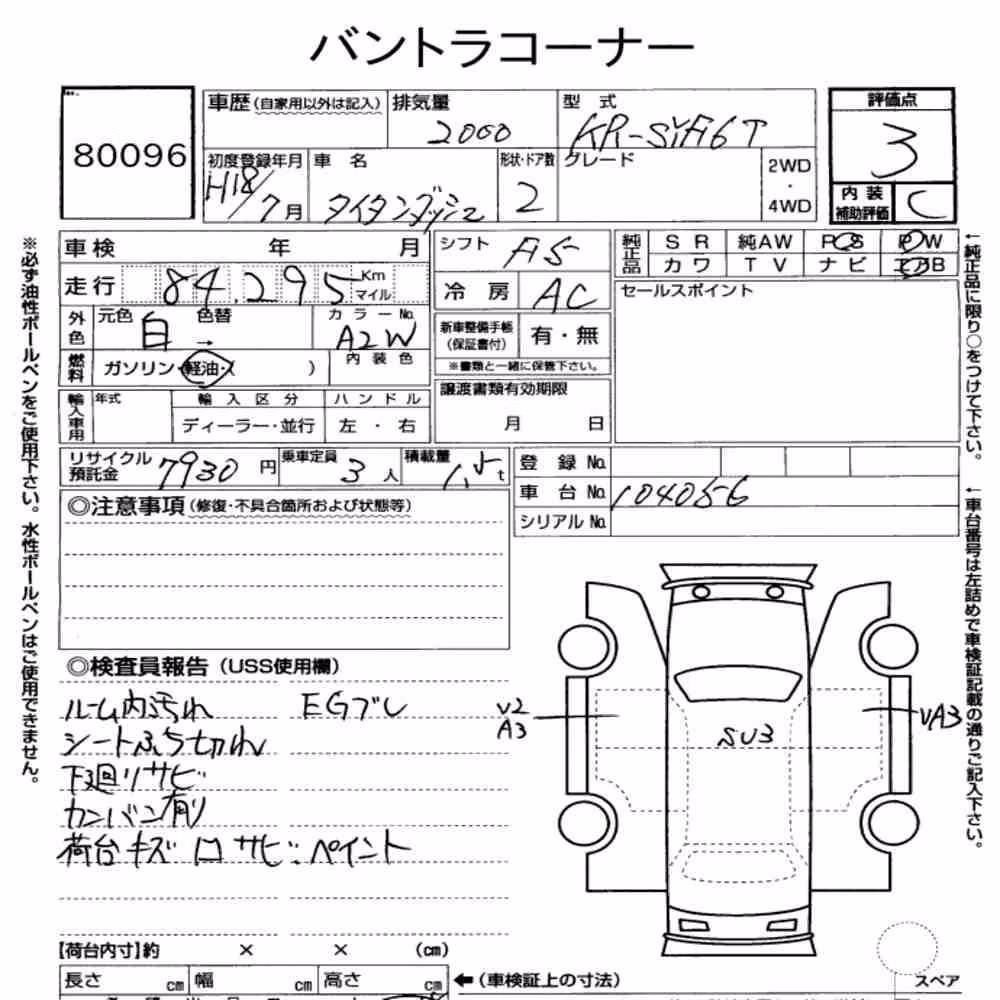 バントラコーナー
80096
車歴(自家用以外は記入)
排気量
2000
型 式
KR-SYF6T
評価点
3
初度登録年月
H18/7月
車 名
タイタンダッシュ
形状・ドア数
2
グレード
2WD
・
4WD
内 装
補助評価
C
※必ず油性ボールペンをご使用下さい。水性ボールペンはご使用できません。
車 検 年 月
シフト
F5
純正品
S R 純AW P S P W
カ ワ T V ナ ビ エアB
走 行 84.295 Km マイル
冷 房
AC
セールスポイント
外色
元色 白 色替 →
カラーNo.
A2W
新車整備手帳
(保証書付)
有・無
※書類と一緒に保管下さい。
燃料
ガソリン・軽油・( )
内 装 色
譲渡書類有効期限
月 日
輸入車用
年式
輸 入 区 分
ディーラー・並行
ハ ン ド ル
左 ・ 右
リサイクル
預託金
7930 円
乗車定員
3 人
積載量
1.5 t
登 録 No.
車 台 No. 104056
シリアル No.
←純正品に限り○をつけて下さい。
←車台番号は左詰めで車検証記載の通りご記入下さい。
◎注意事項(修復・不具合箇所および状態等)
◎検査員報告(USS使用欄)
ルーム内汚れ EGブレ
シートふち切れ
下廻リサビ
カンバン有り
荷台キズ 凹 サビ.ペイント
V2
A3
SU3
VA3
【荷台内寸】約 × × (cm)
長さ cm 幅 cm 高さ cm
←(車検証上の寸法)
スペア